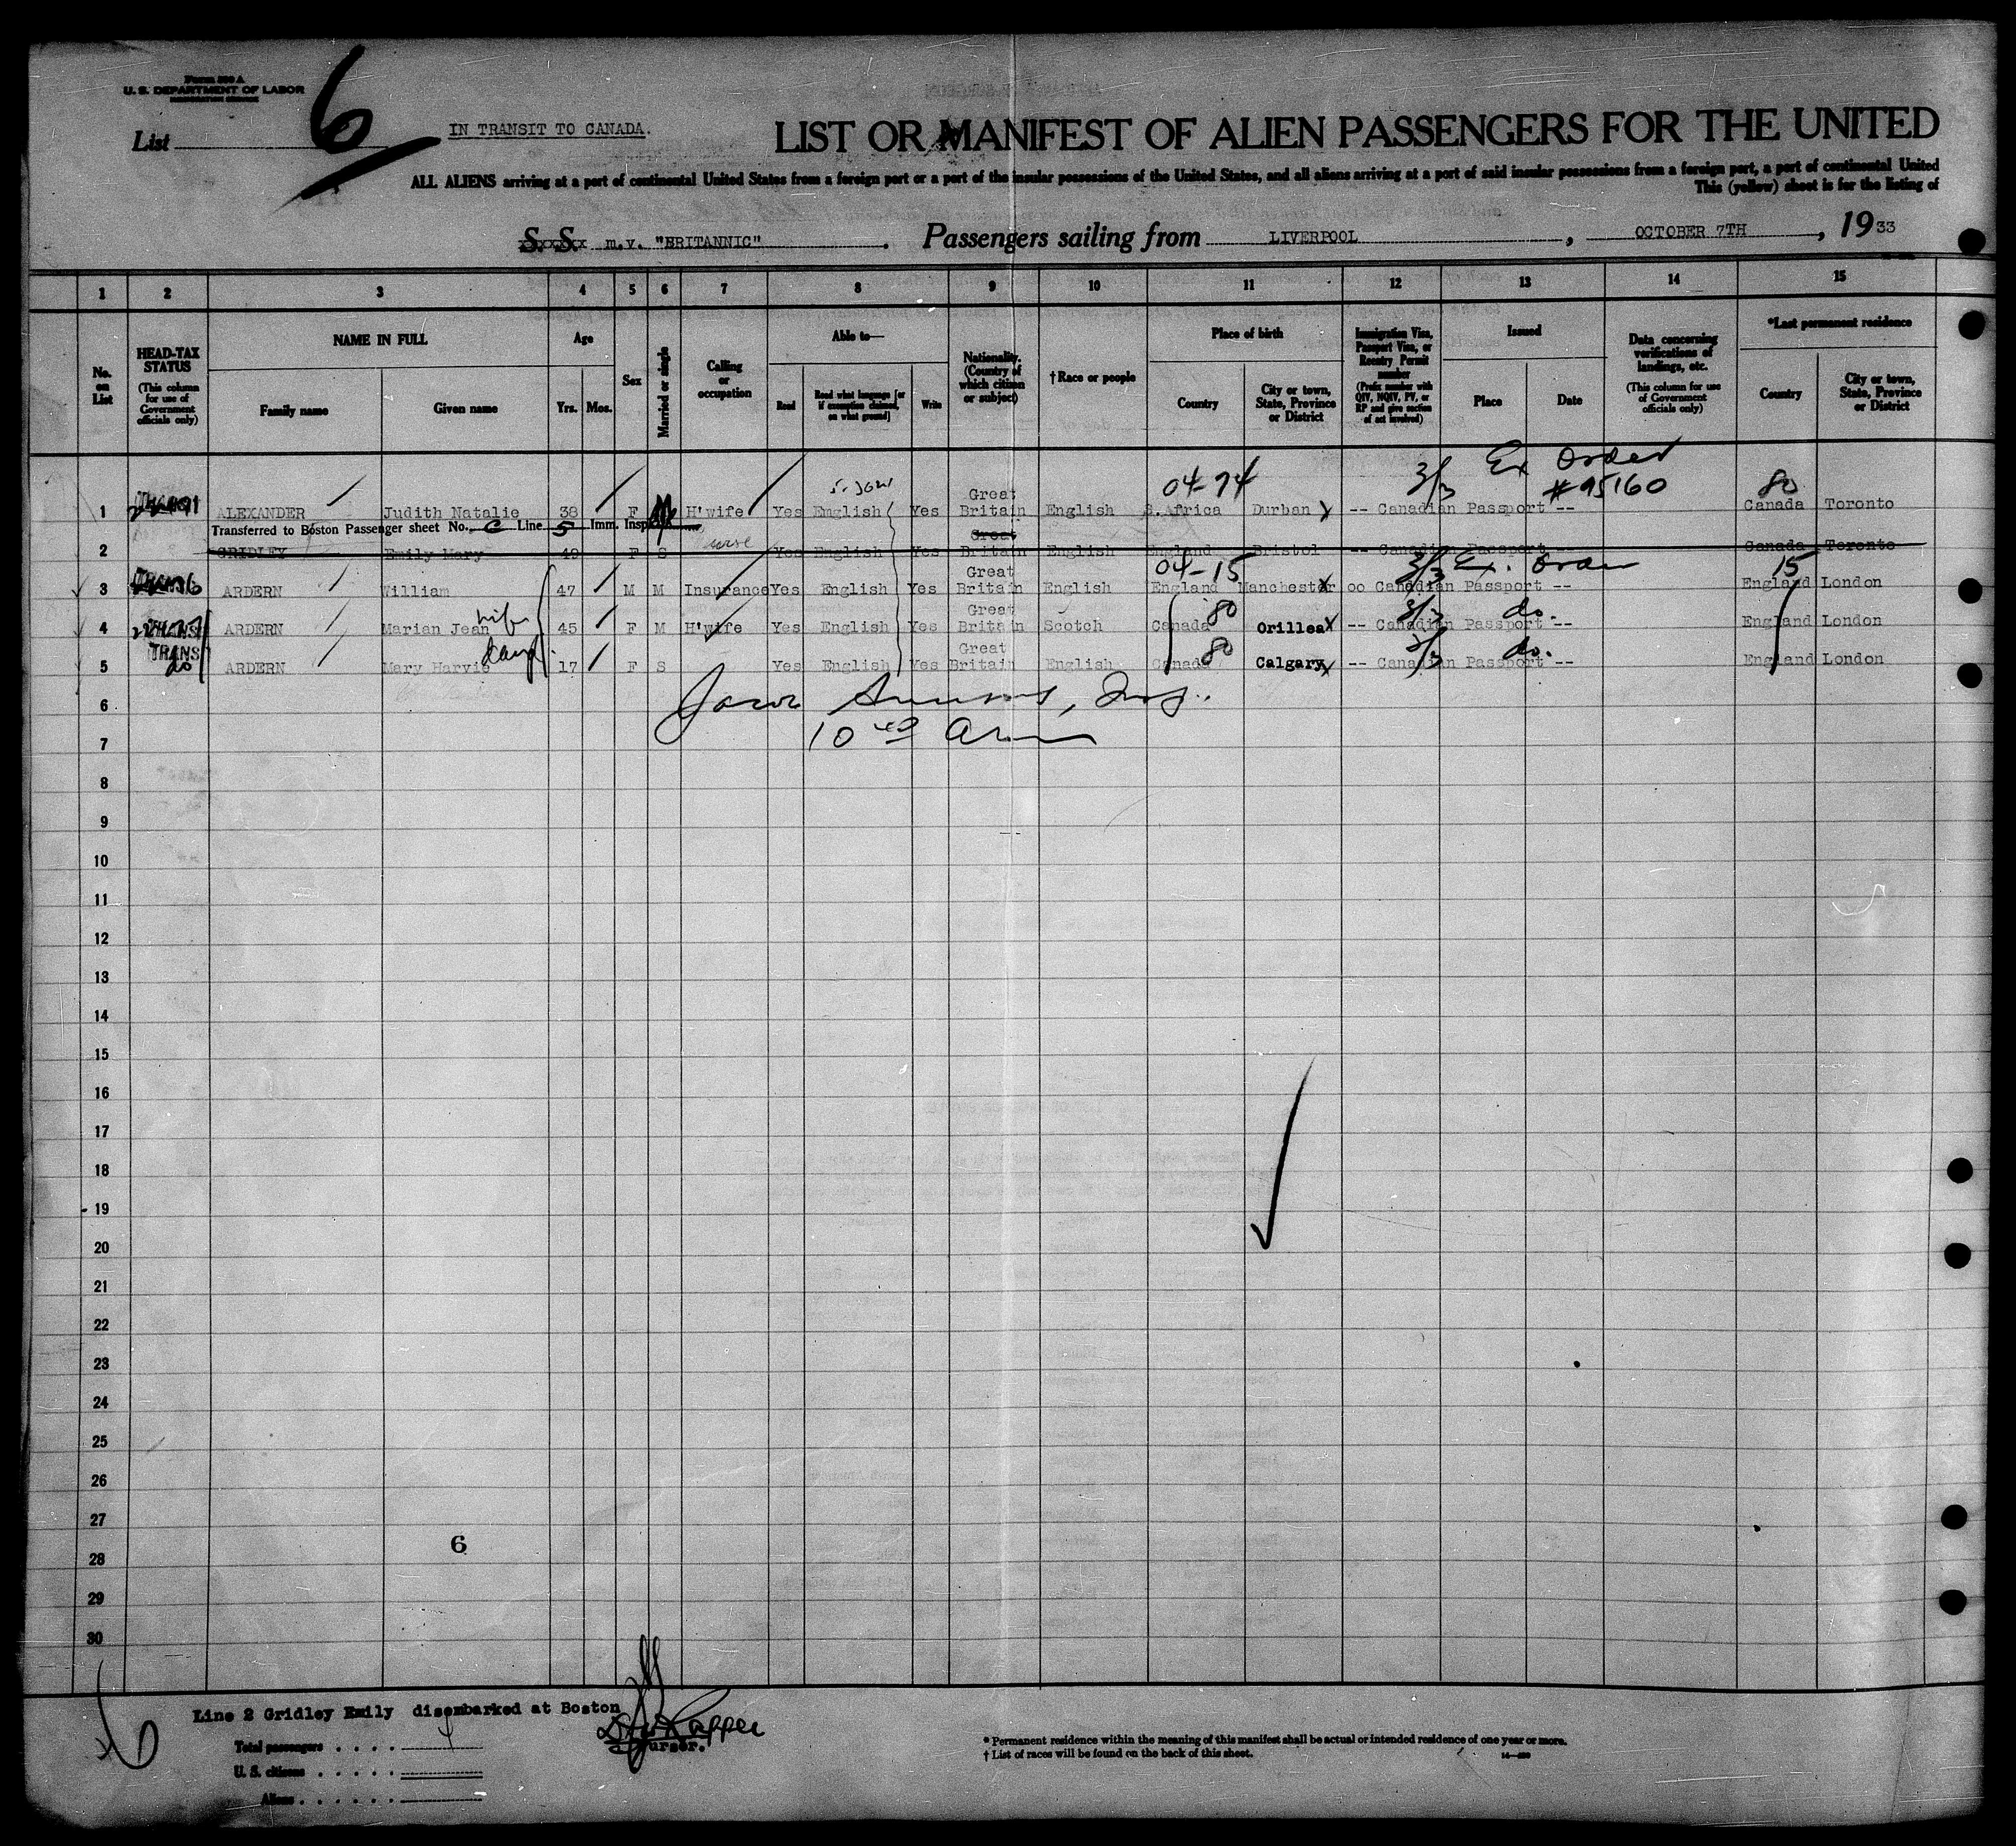 Form 500 A
U. S. DEPARTMENT OF LABOR
IMMIGRATION SERVICE
List 6
IN TRANSIT TO CANADA.
LIST OR MANIFEST OF ALIEN PASSENGERS FOR THE UNITED
ALL ALIENS arriving at a port of continental United States from a foreign port or a port of the insular possessions of the United States, and all aliens arriving at a port of said insular possessions from a foreign port, a port of continental United
This (yellow) sheet is for the listing of
S. S. m.v. "BRITANNIC". Passengers sailing from LIVERPOOL, OCTOBER 7TH, 1933
1 2 3 4 5 6 7 8 9 10 11 12 13 14 15
No. on List
HEAD-TAX STATUS (This column for use of Government officials only)
NAME IN FULL
Family name
Given name
Age
Yrs. Mos.
Sex
Married or single
Calling or occupation
Able to—
Read
Read what language [or if exemption claimed, on what ground]
Write
Nationality. (Country of which citizen or subject)
†Race or people
Place of birth
Country
City or town, State, Province or District
Immigration Visa, Passport Visa, or Reentry Permit number (Prefix number with QIV, NQIV, PV, or RP and give section of act involved)
Issued
Place
Date
Data concerning verifications of landings, etc. (This column for use of Government officials only)
*Last permanent residence
Country
City or town, State, Province or District
04-74 3/3 Ex Order #95160 80
1 ALEXANDER Judith Natalie 38 F M H'wife Yes English Yes Great Britain English S.Africa Durban -- Canadian Passport -- Canada Toronto
Transferred to Boston Passenger sheet No. C Line 5 Imm. Insp.
2 GRIDLEY Emily Mary 49 F S Yes English Yes Great Britain English England Bristol -- Canadian Passport -- Canada Toronto
04-15 3/3 Ex. Order 15
3 ARDERN William 47 M M Insurance Yes English Yes Great Britain English England Manchester oo Canadian Passport -- England London
4 TRANS ARDERN Marian Jean wife 45 F M H'wife Yes English Yes Great Britain Scotch Canada 80 Orillea -- Canadian Passport -- 3/3 do. England London
5 TRANS do ARDERN Mary Harvie daug 17 F S Yes English Yes Great Britain English Canada 80 Calgary -- Canadian Passport -- 3/3 do. England London
6
7 10 40 am
8
9
10
11
12
13
14
15
16
17
18
19
20
21
22
23
24
25
26
27
6
28
29
30
Line 2 Gridley Emily disembarked at Boston
Purser.
Total passengers . . . . 4
U. S. citizens . . . . .
Aliens . . . . . .
* Permanent residence within the meaning of this manifest shall be actual or intended residence of one year or more.
† List of races will be found on the back of this sheet.